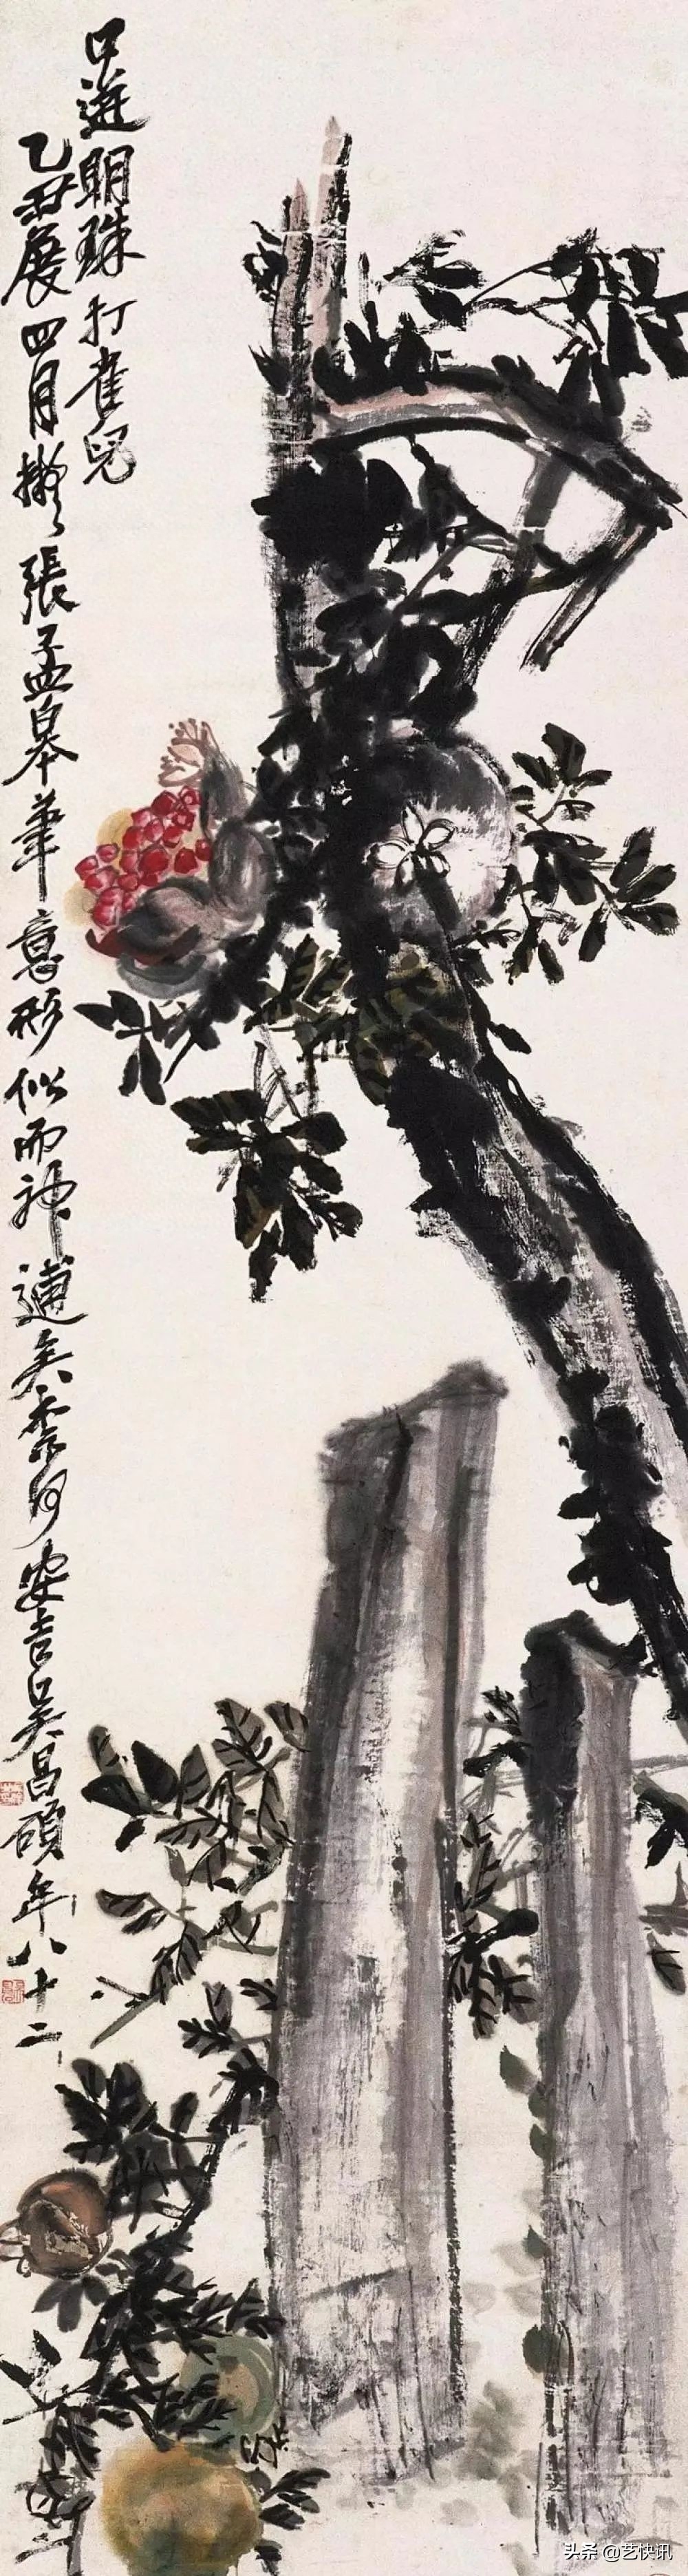 口迸明珠打雀兒
乙丑展四月擬張孟皋筆意形似而神逋矣奈何安吉吳昌碩年八十二
头条 @艺快讯